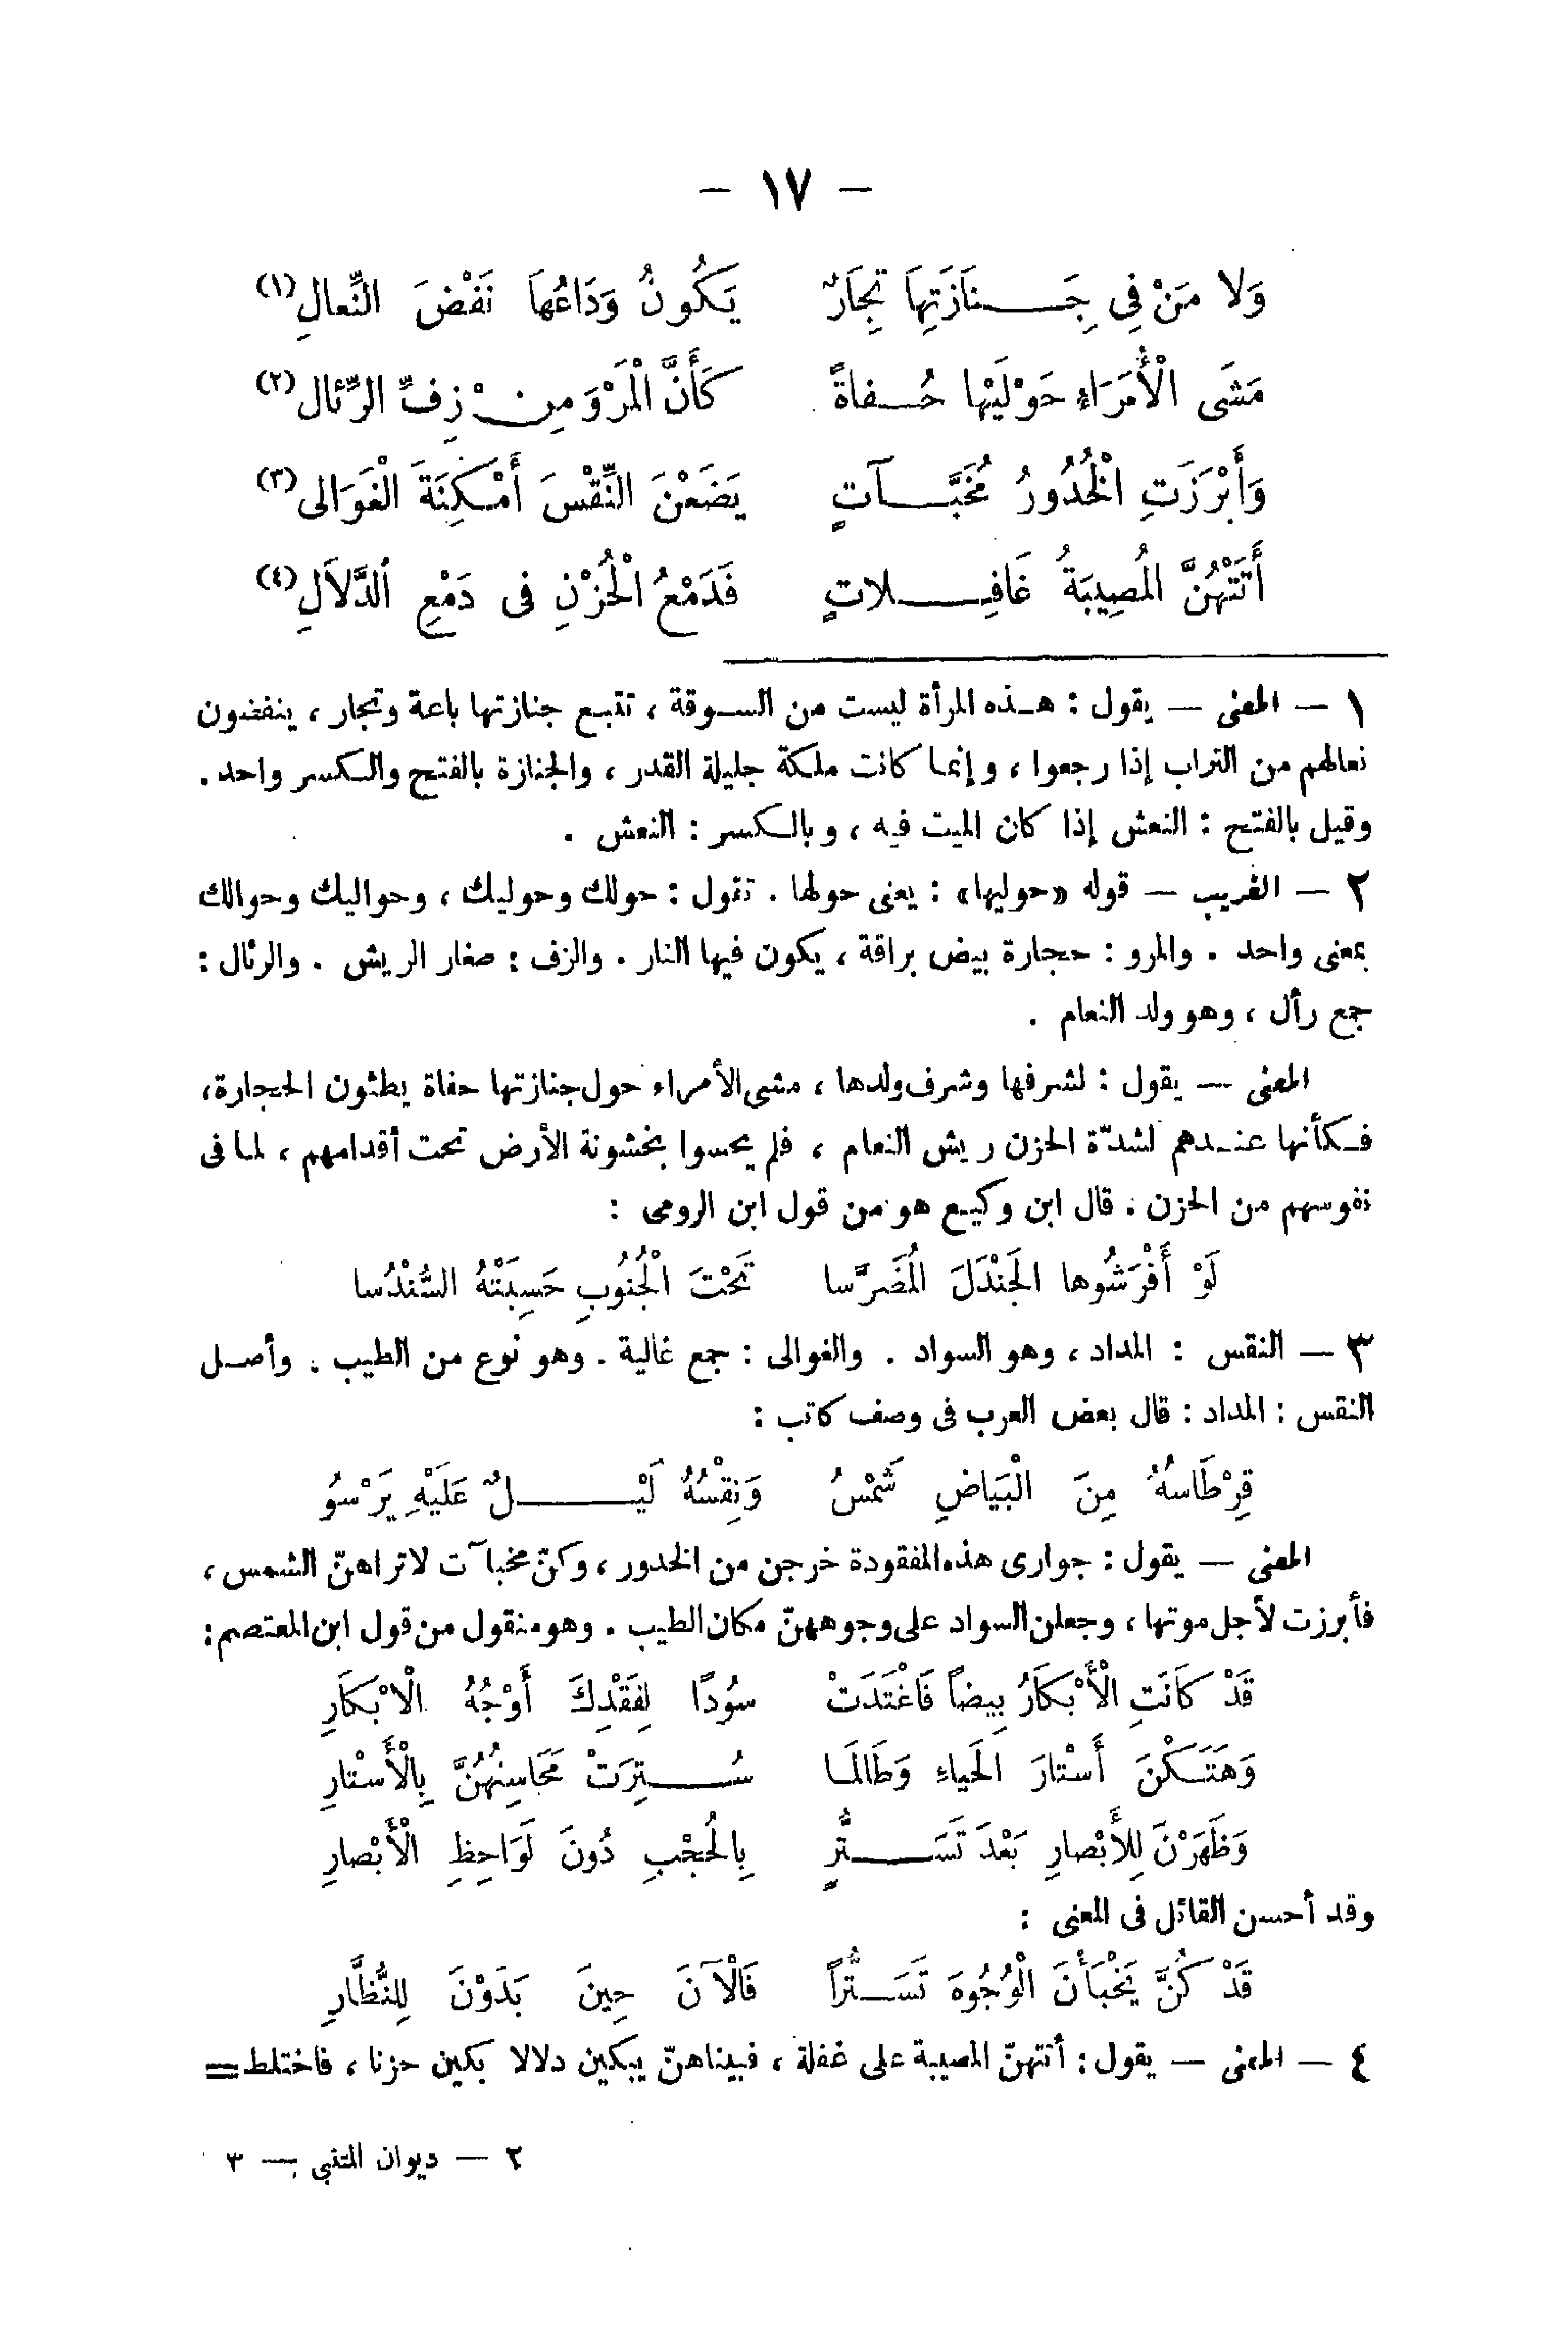 — ١٧ —
وَلا مَنْ فِى جِنَازَتِهَا تِجَارٌ يَكُونُ وَدَاعُهَا نَفْضَ النِّعالِ(١)
مَشَى الْأُمَرَاءِ حَوْلَيْهَا حُفاةً كَأَنَّ الْمَرْوَ مِنْ زِفِّ الرِّئَالِ(٢)
وَأَبْرَزَتِ الْخُدُورُ مُخَبَّآتٍ يَضَعْنَ النِّقْسَ أَمْكِنَةَ الْغَوَالى(٣)
أَتَتْهُنَّ المُصِيبَةُ غَافِلاتٍ فَدَمْعُ الْحُزْنِ فى دَمْعِ الدَّلاَلِ(٤)
١ — المعنى — يقول : هذه المرأة ليست من السوقة ، تتبع جنازتها باعة وتجار ، ينفضون
نعالهم من التراب إذا رجعوا ، وإنما كانت ملكة جليلة القدر ، والجنازة بالفتح والكسر واحد .
وقيل بالفتح : النعش إذا كان الميت فيه ، وبالكسر : النعش .
٢ — الغريب — قوله «حوليها» : يعنى حولها . تقول : حولك وحوليك ، وحواليك وحوالك
بمعنى واحد . والمرو : حجارة بيض براقة ، يكون فيها النار . والزف : صغار الريش . والرئال :
جمع رأل ، وهو ولد النعام .
المعنى — يقول : لشرفها وشرف ولدها ، مشى الأمراء حول جنازتها حفاة يطئون الحجارة ،
فكأنها عندهم لشدّة الحزن ريش النعام ، فلم يحسوا بخشونة الأرض تحت أقدامهم ، لما فى
نفوسهم من الحزن . قال ابن وكيع هو من قول ابن الرومى :
لَوْ أَفْرَشُوها الجَنْدَلَ الْمُضَرَّسا تَحْتَ الْجُنُوبِ حَسِبَتْهُ السُّنْدُسا
٣ — النقس : المداد ، وهو السواد . والغوالى : جمع غالية . وهو نوع من الطيب . وأصل
النقس : المداد : قال بعض العرب فى وصف كاتب :
قِرْطَاسُهُ مِنَ الْبَيَاضِ شَمْسُ وَنِقْسُهُ لَيْلٌ عَلَيْهِ يَرْسُو
المعنى — يقول : جوارى هذه المفقودة خرجن من الخدور ، وكنّ مخبآت لا تراهنّ الشمس ،
فأبرزت لأجل موتها ، وجعلن السواد على وجوههنّ مكان الطيب . وهو منقول من قول ابن المعتصم :
قَدْ كَانَتِ الْأَبْكَارُ بِيضاً فَاغْتَدَتْ سُودًا لِفَقْدِكَ أَوْجُهُ الْابْكَارِ
وَهَتَكْنَ أَسْتَارَ الحَياءِ وَطَالَمَا سُتِرَتْ مَحَاسِنُهُنَّ بِالْأَسْتارِ
وَظَهَرْنَ لِلأَبْصارِ بَعْدَ تَسَتُّرٍ بِالْحُجْبِ دُونَ لَوَاحِظِ الْأَبْصارِ
وقد أحسن القائل فى المعنى :
قَدْ كُنَّ يَخْبَأْنَ الْوُجُوهَ تَسَتُّراً فَالْآنَ حِينَ بَدَوْنَ لِلنُّظَّارِ
٤ — المعنى — يقول : أتتهنّ المصيبة على غفلة ، فبيناهنّ يبكين دلالا بكين حزنا ، فاختلط =
٢ — ديوان المتنبى — ٣